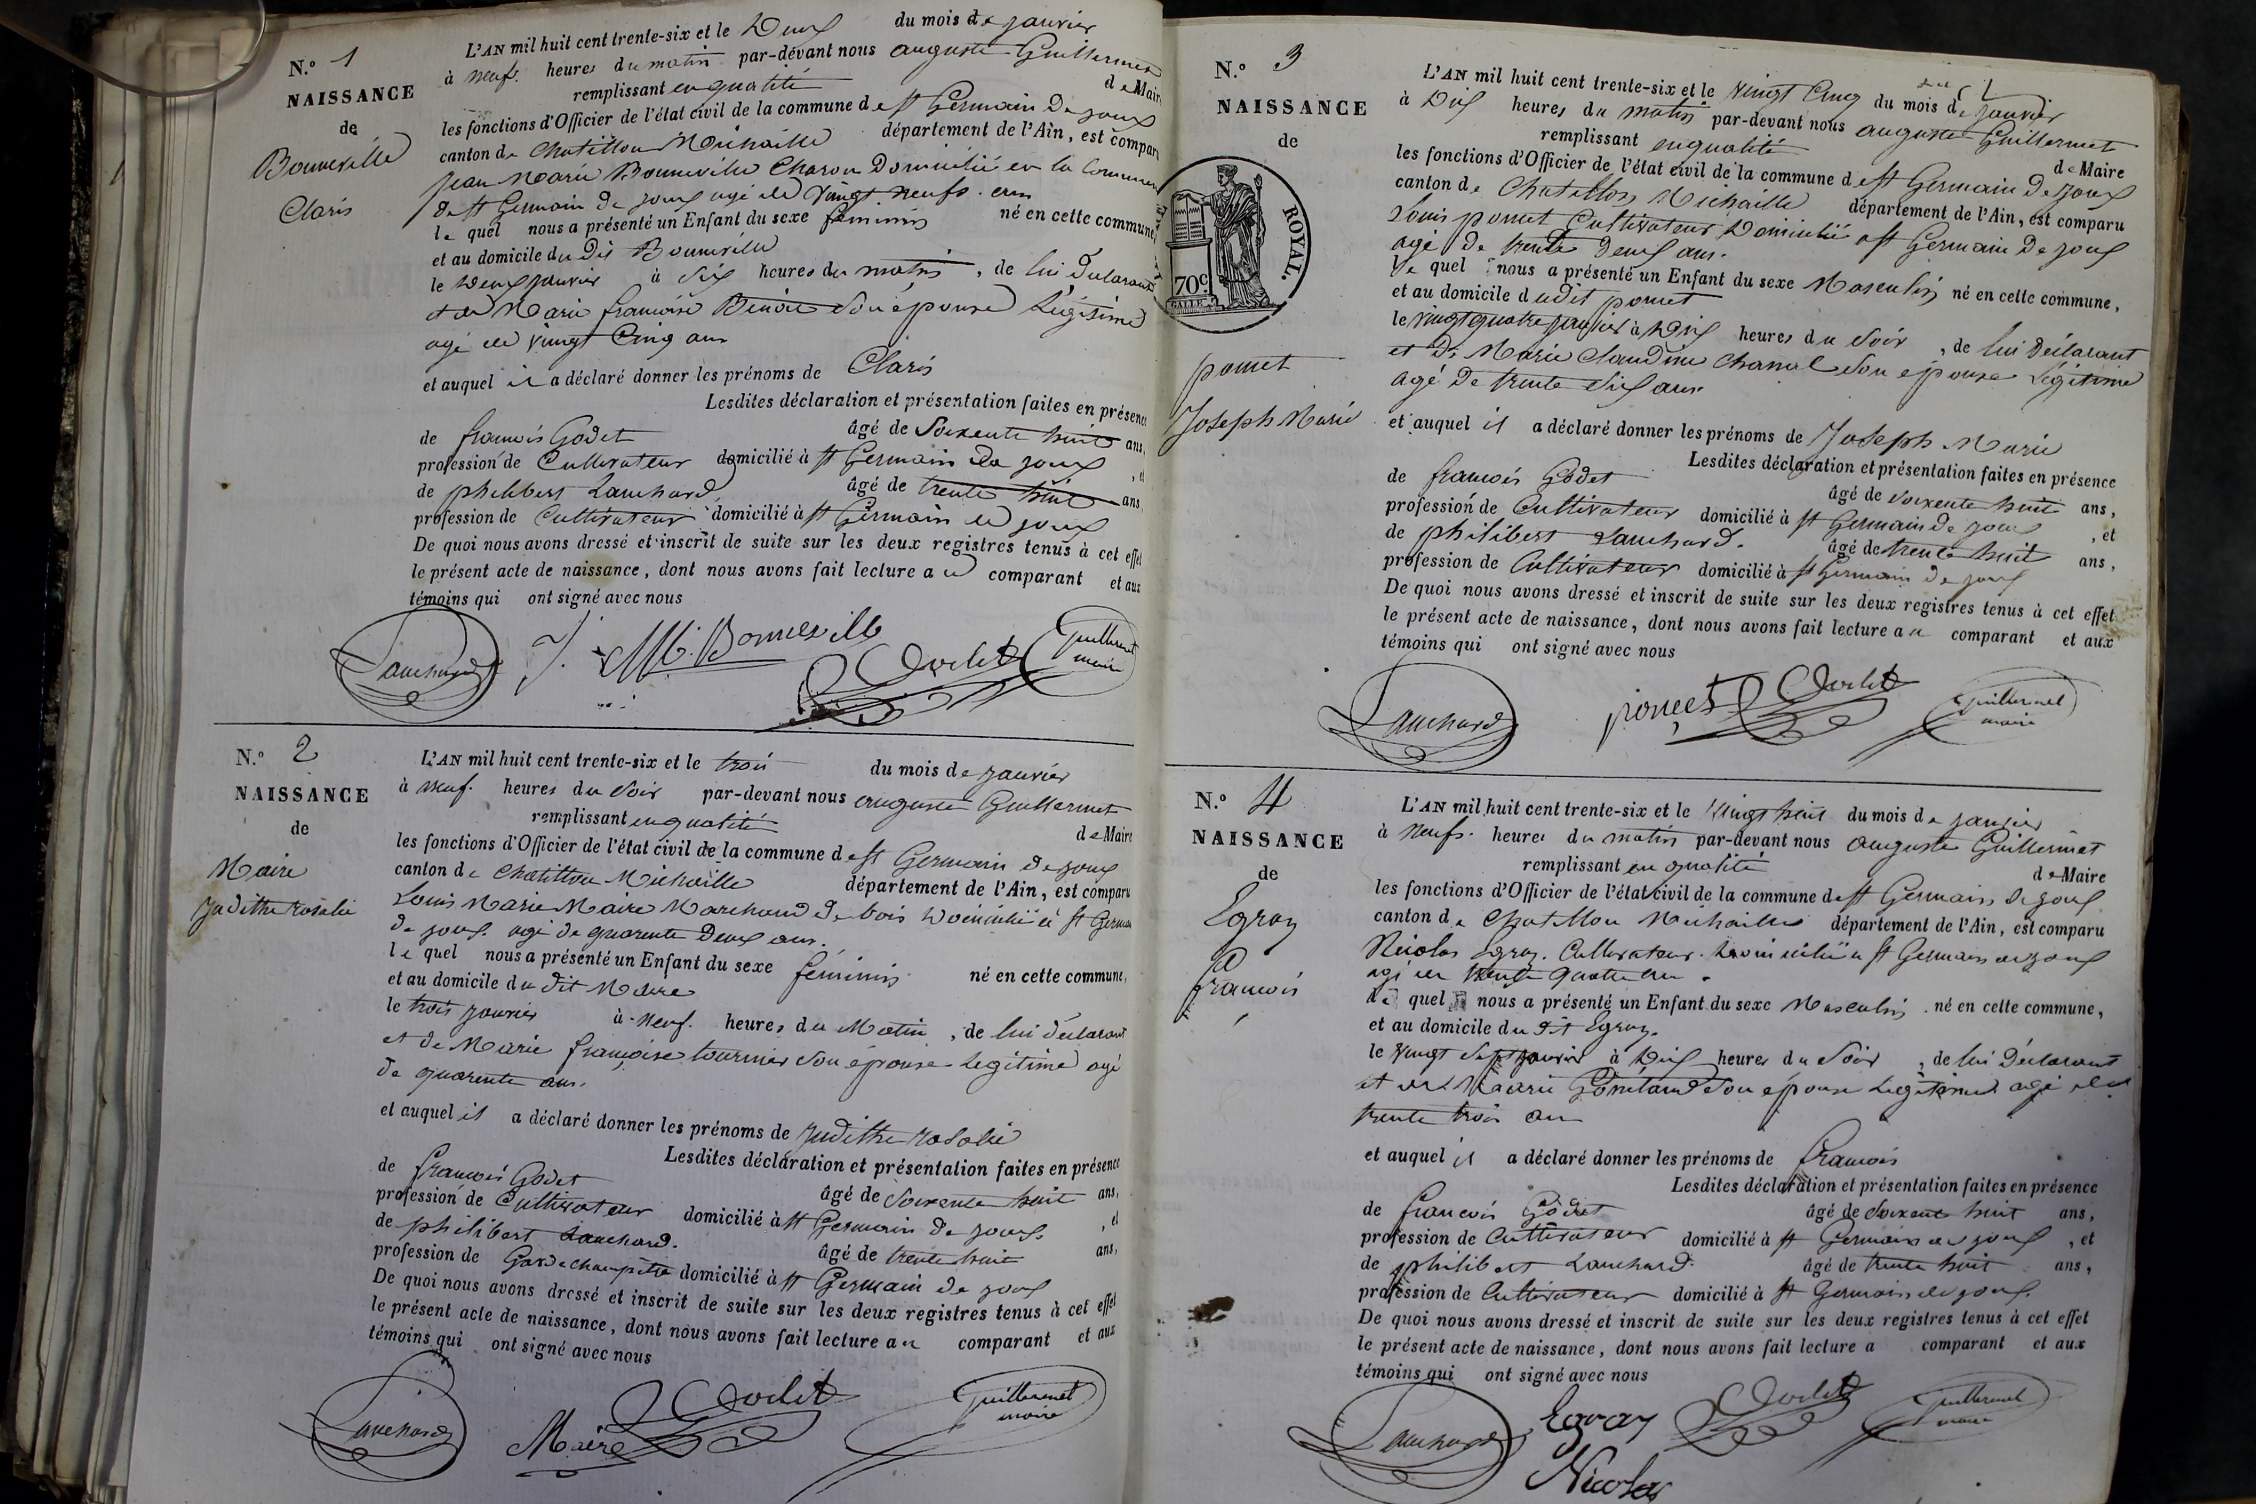 N.º 1
NAISSANCE
de
Bonneville
Claris
L'AN mil huit cent trente-six et le Deux du mois de janvier
à neufs heures du matin par-devant nous auguste Guillermet
remplissant en qualité de Maire
les fonctions d'Officier de l'état civil de la commune de st Germain De joux
canton de Chatillon Michaille département de l'Ain, est compar
jean Marie Bonneville Charon Domicilié en la Commune
de st Germain de joux agé de vingt neufs ans
le quel nous a présenté un Enfant du sexe féminin né en cette commune,
et au domicile du Dit Bonneville
le Deux janvier à six heures du matin, de lui Déclarant
et de Marie françoise Benoit son épouse Légitime
agé de vingt Cinq ans
et auquel il a déclaré donner les prénoms de Claris
Lesdites déclaration et présentation faites en présence
de francois Godet âgé de soixente huit ans,
profession de Cultivateur domicilié à st Germain De joux, et
de philibert Lanchard âgé de trente huit ans
profession de Cultivateur domicilié à st Germain de joux
De quoi nous avons dressé et inscrit de suite sur les deux registres tenus à cet effet
le présent acte de naissance, dont nous avons fait lecture au comparant et aux
témoins qui ont signé avec nous
Lanchard J. M. Bonneville Godet Guillermet
maire
N.º 2
NAISSANCE
de
Maire
juditthe rosalie
L'AN mil huit cent trente-six et le trois du mois de janvier
à neuf heures du soir par-devant nous auguste Guillermet
remplissant en qualité de Maire
les fonctions d'Officier de l'état civil de la commune de st Germain de joux
canton de Chatillon Michaille département de l'Ain, est comparu
Louis Marie Maire Marchand de bois Domicilié à st Germain
de joux agé de quarente Deux ans.
le quel nous a présenté un Enfant du sexe féminin né en cette commune,
et au domicile du dit Maire
le trois janvier à neuf heures du Matin, de lui déclarant
et de Marie françoise tournier son épouse Legitime agé
de quarente ans.
et auquel il a déclaré donner les prénoms de juditthe rosalie
Lesdites déclaration et présentation faites en présence
de francois Godet âgé de soixente huit ans,
profession de Cultivateur domicilié à st Germain de joux, et
de philibert Lanchard. âgé de trente huit ans,
profession de Garde champêtre domicilié à st Germain de joux
De quoi nous avons dressé et inscrit de suite sur les deux registres tenus à cet effet
le présent acte de naissance, dont nous avons fait lecture au comparant et aux
témoins qui ont signé avec nous
Lanchard Maire Godet Guillermet
maire
N.º 3
NAISSANCE
de
ROYAL.
70c
pomet
Joseph Marie
L'AN mil huit cent trente-six et le vingt Cinq du mois de janvier
à Dix heures du matin par-devant nous auguste Guillermet
remplissant en qualité de Maire
les fonctions d'Officier de l'état civil de la commune de st Germain De joux
canton de Chatillon Michaille département de l'Ain, est comparu
Louis pomet Cultivateur Domicilié a st Germain De joux
agé De trente Deux ans.
le quel nous a présenté un Enfant du sexe Masculin né en cette commune,
et au domicile dudit pomet
le vingt quatre janvier à Dix heures du soir, de lui Déclarant
et De Marie Claudine Chanal son épouse Légitime
agé De trente six ans
et auquel il a déclaré donner les prénoms de Joseph Marie
Lesdites déclaration et présentation faites en présence
de francois Godet âgé de soixente huit ans,
profession de Cultivateur domicilié à st Germain de joux, et
de philibert Lanchard. âgé de trente huit ans,
profession de Cultivateur domicilié à st Germain de joux
De quoi nous avons dressé et inscrit de suite sur les deux registres tenus à cet effet
le présent acte de naissance, dont nous avons fait lecture au comparant et aux
témoins qui ont signé avec nous
Lanchard Godet Guillermet
maire
N.º 4
NAISSANCE
de
Egray
francois
L'AN mil huit cent trente-six et le vingt huit du mois de janvier
à neufs heures du matin par-devant nous auguste Guillermet
remplissant en qualité de Maire
les fonctions d'Officier de l'état civil de la commune de st Germain De joux
canton de Chatillon Michaille département de l'Ain, est comparu
Nicolas Egray. Cultivateur Domicilié a st Germain de joux
agé de trente quatre ans.
le quel nous a présenté un Enfant du sexe Masculin né en cette commune,
et au domicile du dit Egray.
le vingt sept janvier à Dix heures du soir, de lui Déclarant
et de Marie son épouse Legitime agé de
trente trois ans
et auquel il a déclaré donner les prénoms de francois
Lesdites déclaration et présentation faites en présence
de francois Godet âgé de soixente huit ans,
profession de Cultivateur domicilié à st Germain de joux, et
de philibert Lanchard âgé de trente huit ans,
profession de Cultivateur domicilié à st Germain de joux.
De quoi nous avons dressé et inscrit de suite sur les deux registres tenus à cet effet
le présent acte de naissance, dont nous avons fait lecture a comparant et aux
témoins qui ont signé avec nous
Lanchard Egray Godet Guillermet
maire
Nicolas